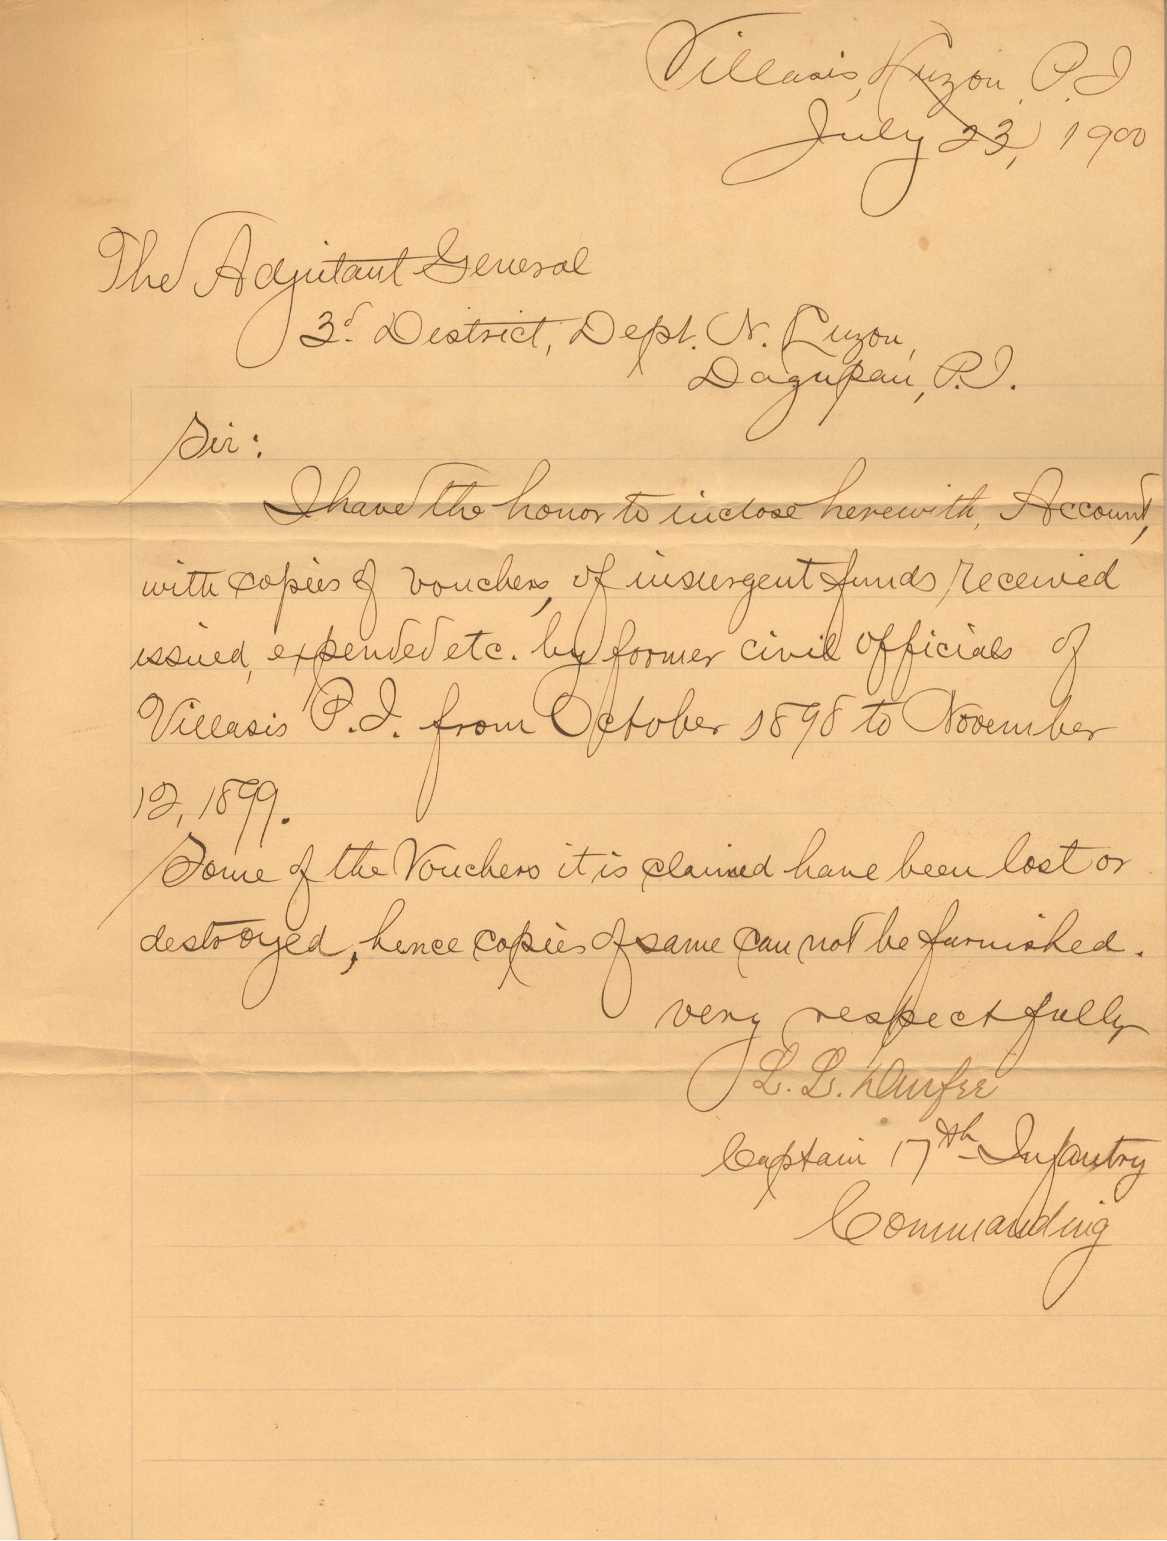 Villasis, Luzon, P.I
July 23, 1900
The Adjutant General
3d. District, Dept. N. Luzon,
Dagupan, P.I.
Sir:
I have the honor to inclose herewith, Account,
with copies of vouchers, of insurgent funds, received
issued, expended etc. by former civil officials of
Villasis P.I. from October 1898 to November
12, 1899.
Some of the Vouchers it is claimed have been lost or
destroyed, hence copies of same can not be furnished.
very respectfully
L. L. Durfee
Captain 17th Infantry
Commanding